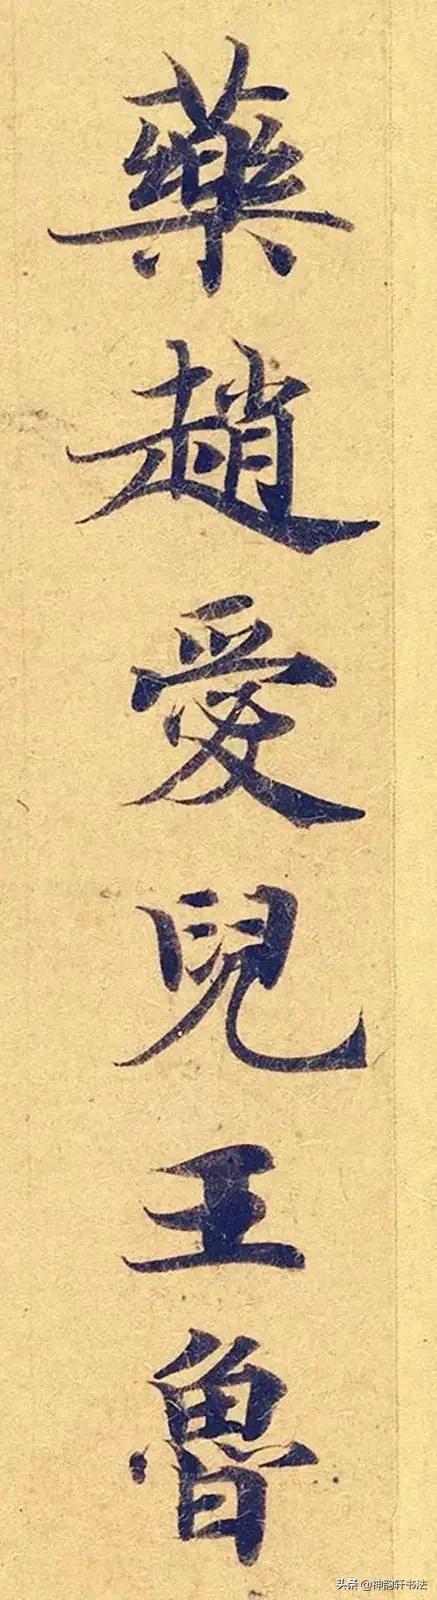 藥趙愛兒王魯
头条 @神韵轩书法